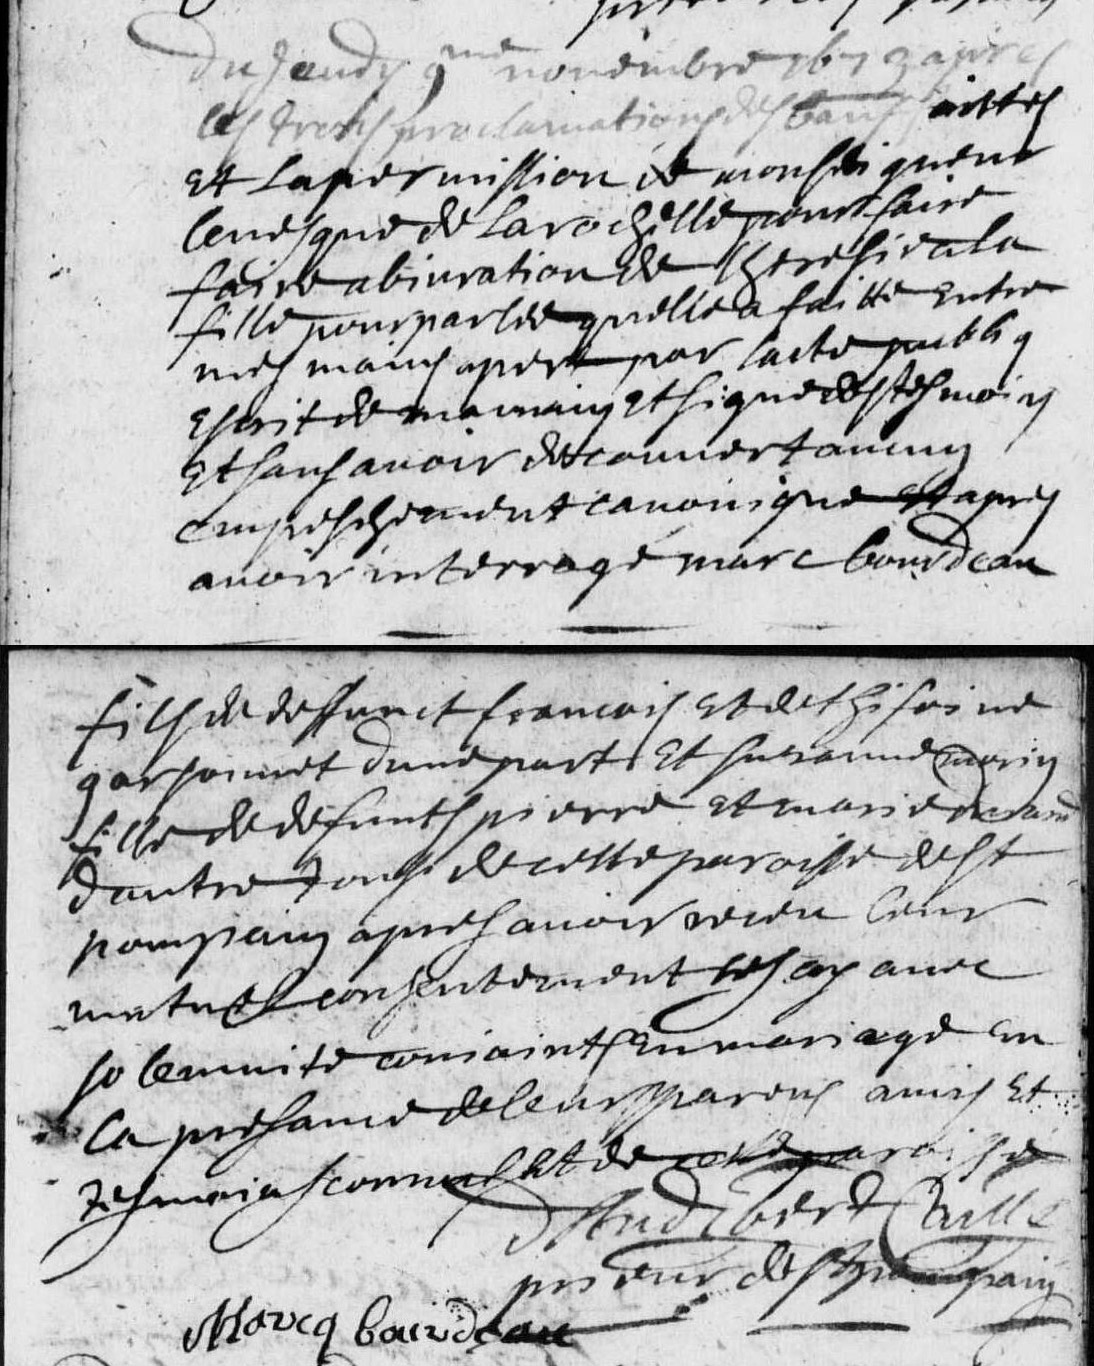 du Jeudy 9me novembre 1673 apres
les trois proclamations des bans faittes
et la permission de monseigneur
levesque de la rochelle pour faire
faire abiuration de lheresie a la
fille pourparlee quelle a faitte entre
mes mains apert par lacte publiq
escrit de ma main et signe des tesmoins
et sans avoir descouvert aucun
empeschement canonique et apres
avoir interrogé marc bourdeau
fils de deffunct francois et de thifoine
garsonnet dune part et susanne morin
fille de defuncts pierre et marie
dautre tous de cette paroisse de st
pompain apres avoir receu leur
mutuel consentement les ay avec
solemnite coniaints en mariage en
la presance de leurs parens amis et
tesmoins connus et de cette paroisse
Audebert
prieur de st pompain
Marcq bourdeau